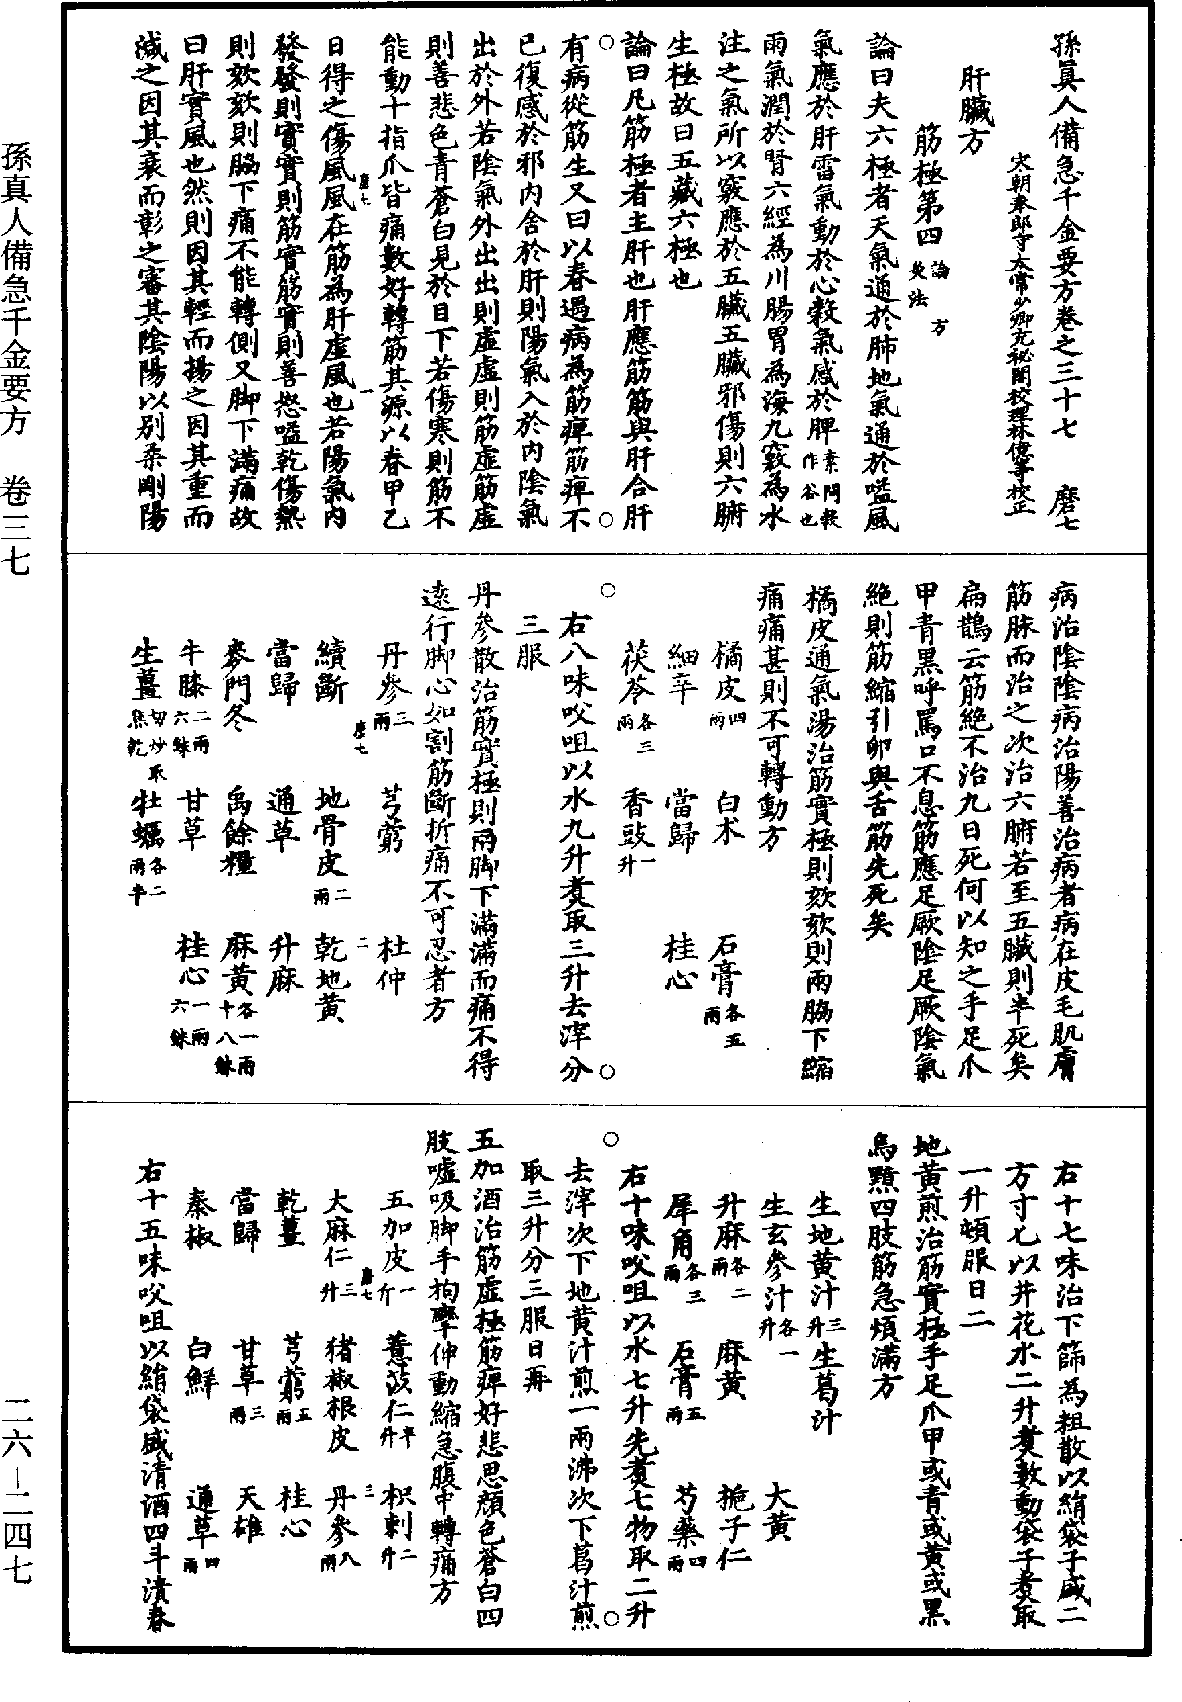 孫真人備急千金要方卷之三十七　磨七
宋朝奉郎守太常少卿充秘閣校理林億等校正
肝臟方
筋極第四 論 方 灸法
論曰夫六極者天氣通於肺地氣通於嗌風
氣應於肝雷氣動於心穀氣感於脾素問穀作谷也
雨氣潤於腎六經為川腸胃為海九竅為水
注之氣所以竅應於五臟五臟邪傷則六腑
生極故曰五藏六極也
論曰凡筋極者主肝也肝應筋筋與肝合肝
有病從筋生又曰以春遇病為筋痺筋痺不
已復感於邪內舍於肝則陽氣入於內陰氣
出於外若陰氣外出出則虛虛則筋虛筋虛
則善悲色青蒼白見於目下若傷寒則筋不
能動十指爪皆痛數好轉筋其源以春甲乙
日得之傷風風在筋為肝虛風也若陽氣內
發發則實實則筋實筋實則善怒嗌乾傷熱
則欬欬則脇下痛不能轉側又脚下滿痛故
曰肝實風也然則因其輕而揚之因其重而
減之因其衰而彰之審其陰陽以別柔剛陽
磨七　一
病治陰陰病治陽善治病者病在皮毛肌膚
筋脉而治之次治六腑若至五臟則半死矣
扁鵲云筋絕不治九日死何以知之手足爪
甲青黑呼罵口不息筋應足厥陰足厥陰氣
絕則筋縮引卵與舌筋先死矣
橘皮通氣湯治筋實極則欬欬則兩脇下縮
痛痛甚則不可轉動方
橘皮四兩　白术　石膏各五兩
細辛　當歸　桂心
茯苓各三兩　香豉一升
右八味㕮咀以水九升煑取三升去滓分
三服
丹參散治筋實極則兩脚下滿滿而痛不得
遠行脚心如割筋斷折痛不可忍者方
丹參三兩　芎藭　杜仲
磨七　二
續斷　地骨皮二兩　乾地黃
當歸　通草　升麻
麥門冬　禹餘糧　麻黃各一兩十八銖
牛膝二兩六銖　甘草　桂心一兩六銖
生薑切炒取焦乾　牡蠣各二兩半
右十七味治下篩為粗散以絹袋子盛二
方寸匕以井花水二升煑數動袋子煑取
一升頓服日二
地黃煎治筋實極手足爪甲或青或黃或黑
烏黯四肢筋急煩滿方
生地黃汁三升　生葛汁
生玄參汁各一升　大黃
升麻各二兩　麻黃　梔子仁
犀角各三兩　石膏五兩　芍藥四兩
右十味㕮咀以水七升先煑七物取二升
去滓次下地黃汁煎一兩沸次下葛汁煎
取三升分三服日再
五加酒治筋虛極筋痺好悲思顏色蒼白四
肢噓吸脚手拘攣伸動縮急腹中轉痛方
五加皮一斤　薏苡仁半升　枳刺二升
磨七　三
大麻仁三升　猪椒根皮　丹參八兩
乾薑　芎藭五兩　桂心
當歸　甘草三兩　天雄
秦椒　白鮮　通草四兩
右十五味㕮咀以絹袋盛清酒四斗漬春
孫真人備急千金要方　卷三七
二六－二四七